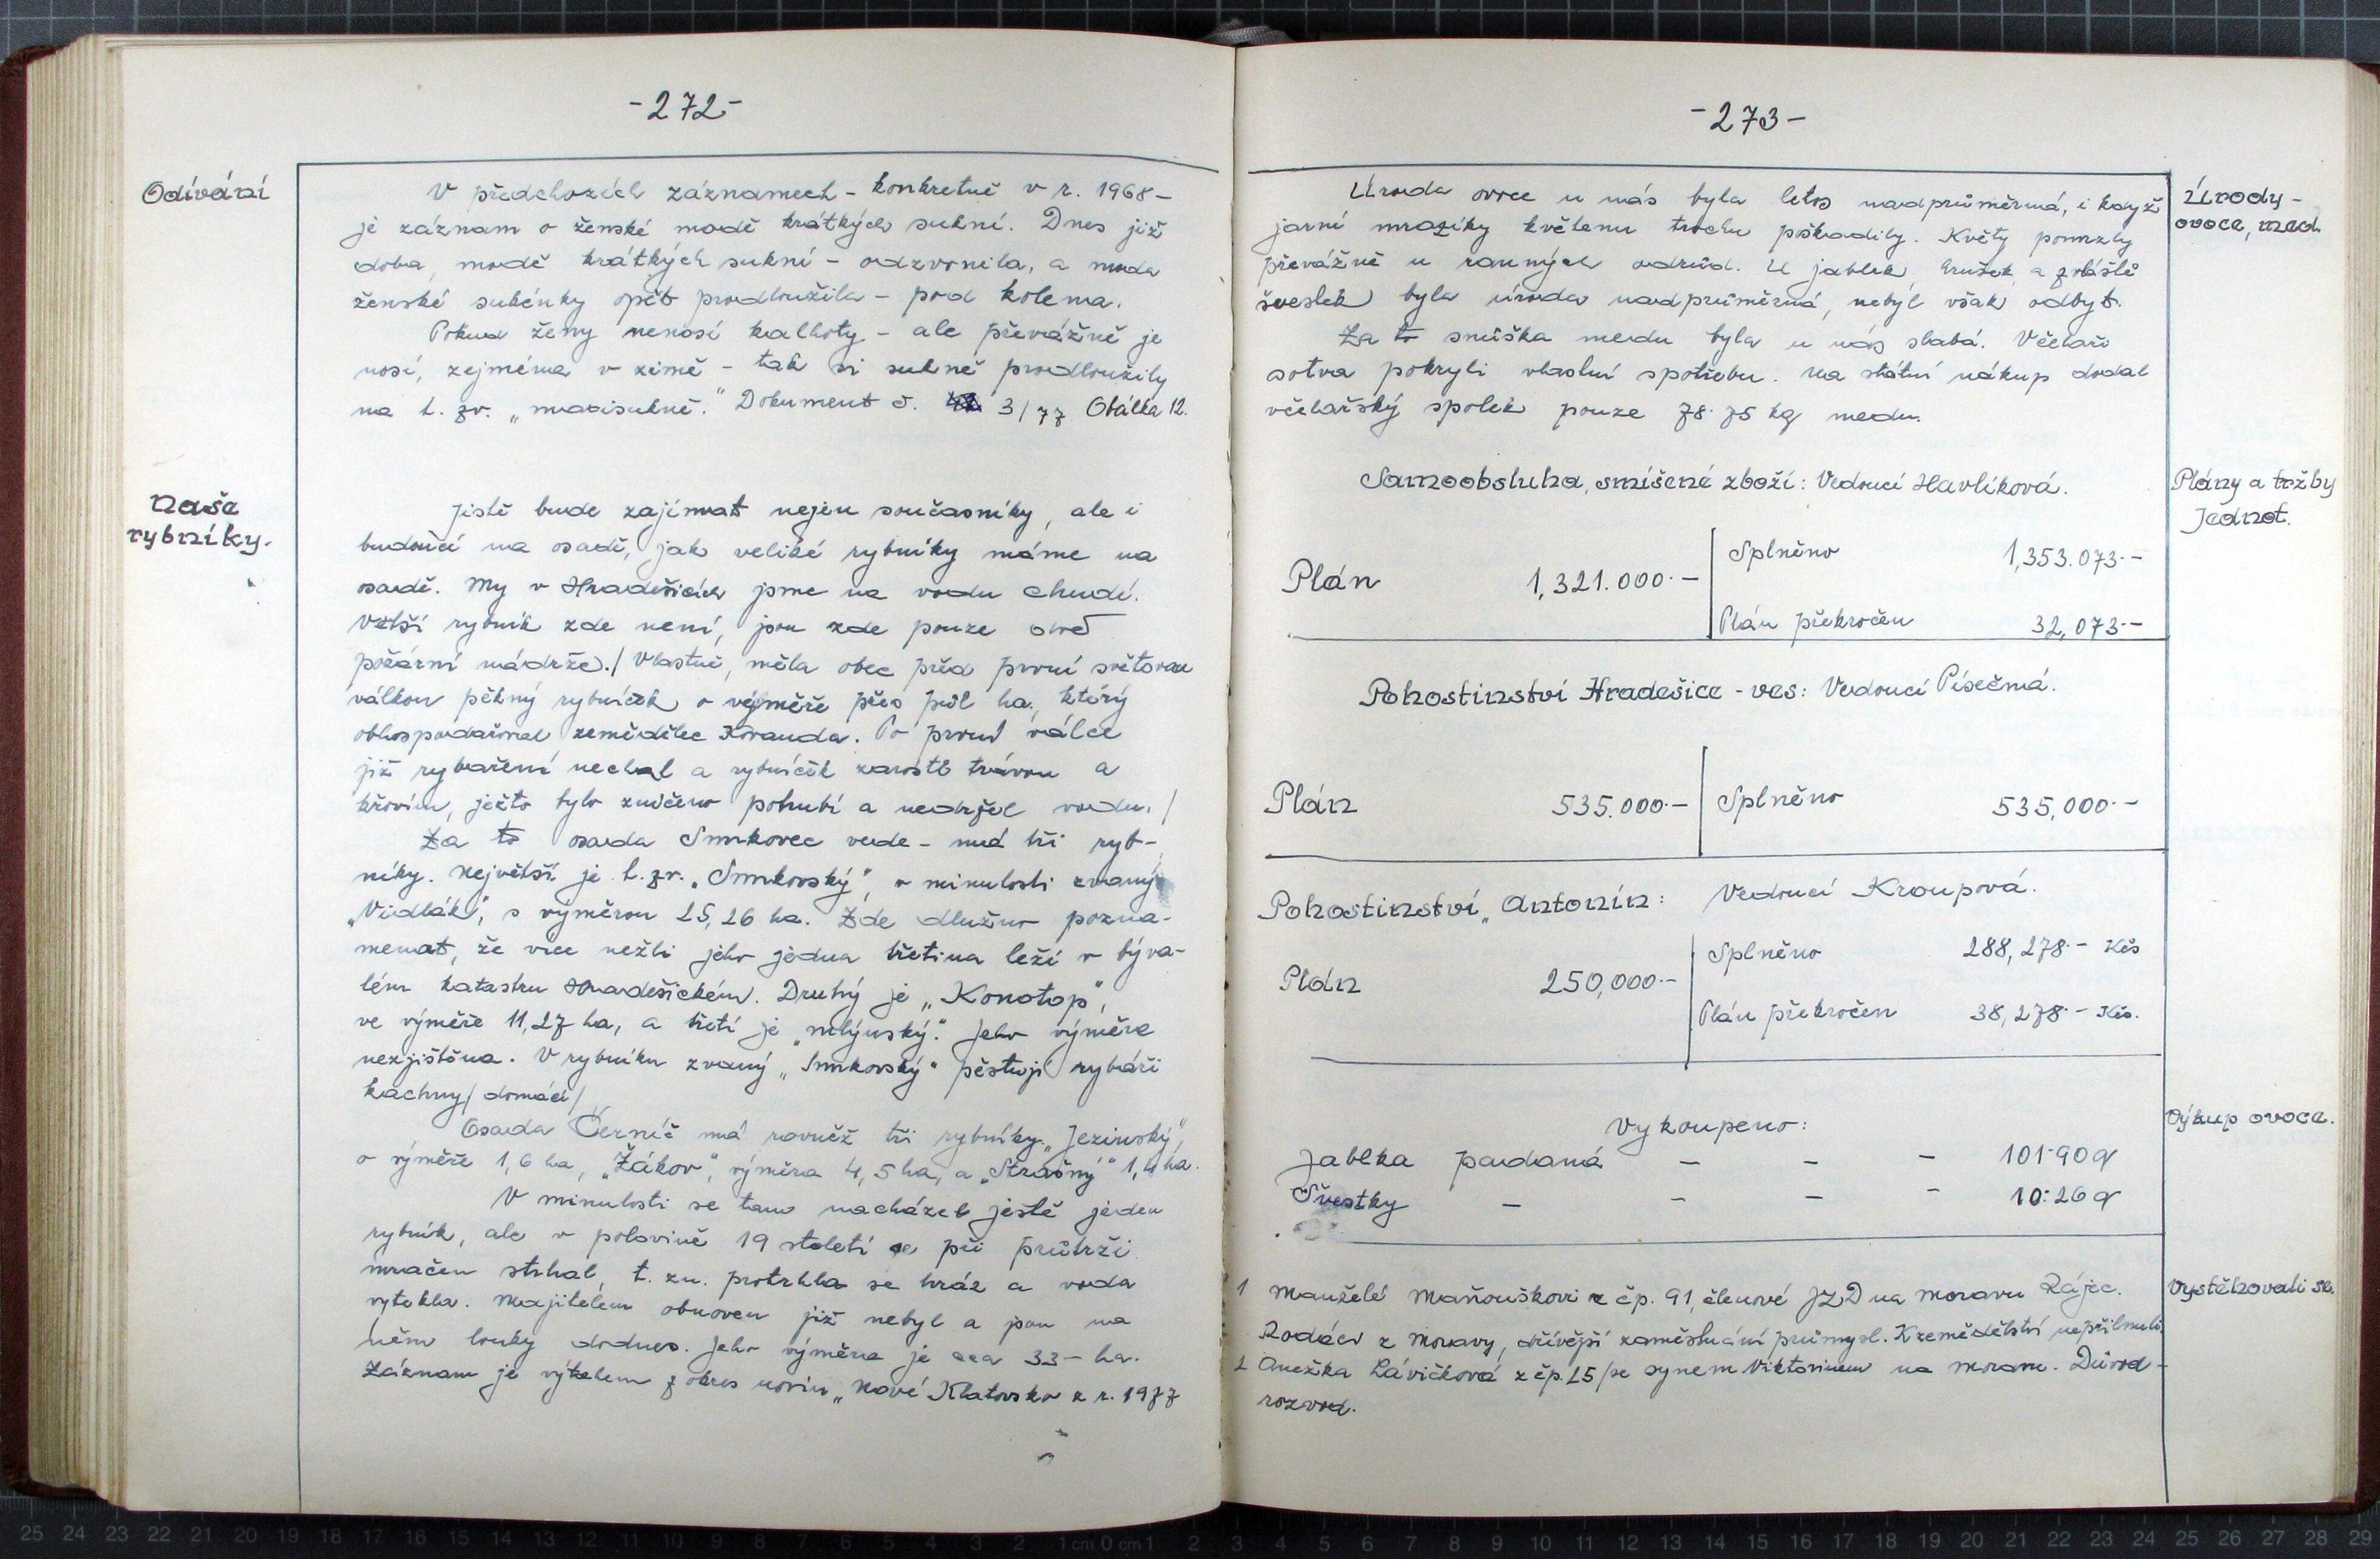 -272-
Odívání
V předchozích záznamech - konkretně v r. 1968 -
je záznam o ženské modě krátkých sukní. Dnes již
doba, modě krátkých sukní - odzvonila, a moda
ženské sukénky opět prodloužila - pod kolena.
Pokud ženy nenosí kalhoty - ale převážně je
nosí, zejména v zimě - tak si sukně prodloužily
na t. zv. „maxisukně." Dokument č. 3/77 Obálka 12.
Naše
rybníky.
Jistě bude zajímat nejen současníky, ale i
budoucí na osadě, jak veliké rybníky máme na
osadě. My v Hradešicích jsme na vodu chudí.
Větší rybník zde není, jsou zde pouze dvě
požární nádrže. / Vlastně, měla obec před první světovou
válkou pěkný rybníček o výměře přes půl ha, který
obhospodařoval zemědělec Koranda. Po první válce
již rybaření nechal a rybníček zarostl trávou a
křovím, ježto bylo zničeno potrubí a nedržel vodu. /
Za to osada Smrkovec vede - má tři ryb-
níky. Největší je t. zv. „Smrkovský", v minulosti zvaný
„Vidlák", s výměrou 25,26 ha. Zde dlužno pozna-
menat, že více nežli jeho jedna třetina leží v býva-
lém katastru Hradešickém. Druhý je „Konotop",
ve výměře 11,27 ha, a třetí je „mlýnský." Jeho výměra
nezjištěna. V rybníku zvaný „Smrkovský" pěstují rybáři
kachny / domácí /
Osada Černíč má rovněž tři rybníky. „Jezinský",
o výměře 1,6 ha, „Žákov", výměra 4,5 ha, a „Strašný" 1,4 ha.
V minulosti se tam nacházel ještě jeden
rybník, ale v polovině 19 století se při průtrži
mračen strhal, t. zn. protrhla se hráz a voda
vytekla. Majitelem obnoven již nebyl a jsou na
něm louky dodnes. Jeho výměra je cca 33- ha.
Záznam je výtahem z okres novin „Nové Klatovsko z r. 1977
-273-
Úroda ovoce u nás byla letos nadprůměrná, i když
jarní mrazíky květenu trochu poškodily. Květy pomrzly
převážně u raných odrůd. U jablek, hrušek a zvláště
švestek byla úroda nadprůměrná, nebyl však odbyt.
Za to snůška medu byla u nás slabá. Včelaři
sotva pokryli vlastní spotřebu. Na státní nákup dodal
včelařský spolek pouze 78·75 kg medu.
Úrody -
ovoce, med.
Samoobsluha, smíšené zboží: Vedoucí Havlíková.
Plány a tržby
Jednot.
Splněno 1,353.073·-
Plán 1,321.000·-
Plán překročen 32,073·-
Pohostinství Hradešice - ves: Vedoucí Písečná.
Plán 535.000·- Splněno 535,000·-
Pohostinství „Antonín: Vedoucí Kroupová.
Splněno 288,278·- Kčs
Plán 250,000·-
Plán překročen 38,278·- Kčs.
Vykoupeno:
Výkup ovoce.
Jablka padaná - - - 101·90 q
Švestky - - - - 10·26 q
1 Manželé Maňouškovi z čp. 91, členové JZD na Moravu Rájec.
Vystěhovali se.
Rodáci z Moravy, dřívější zaměstnání průmysl. K zemědělství nepřilnuli.
2 Anežka Lávičková z čp. 25 / se synem Viktorinem na Moravu. Důvod -
rozvod.